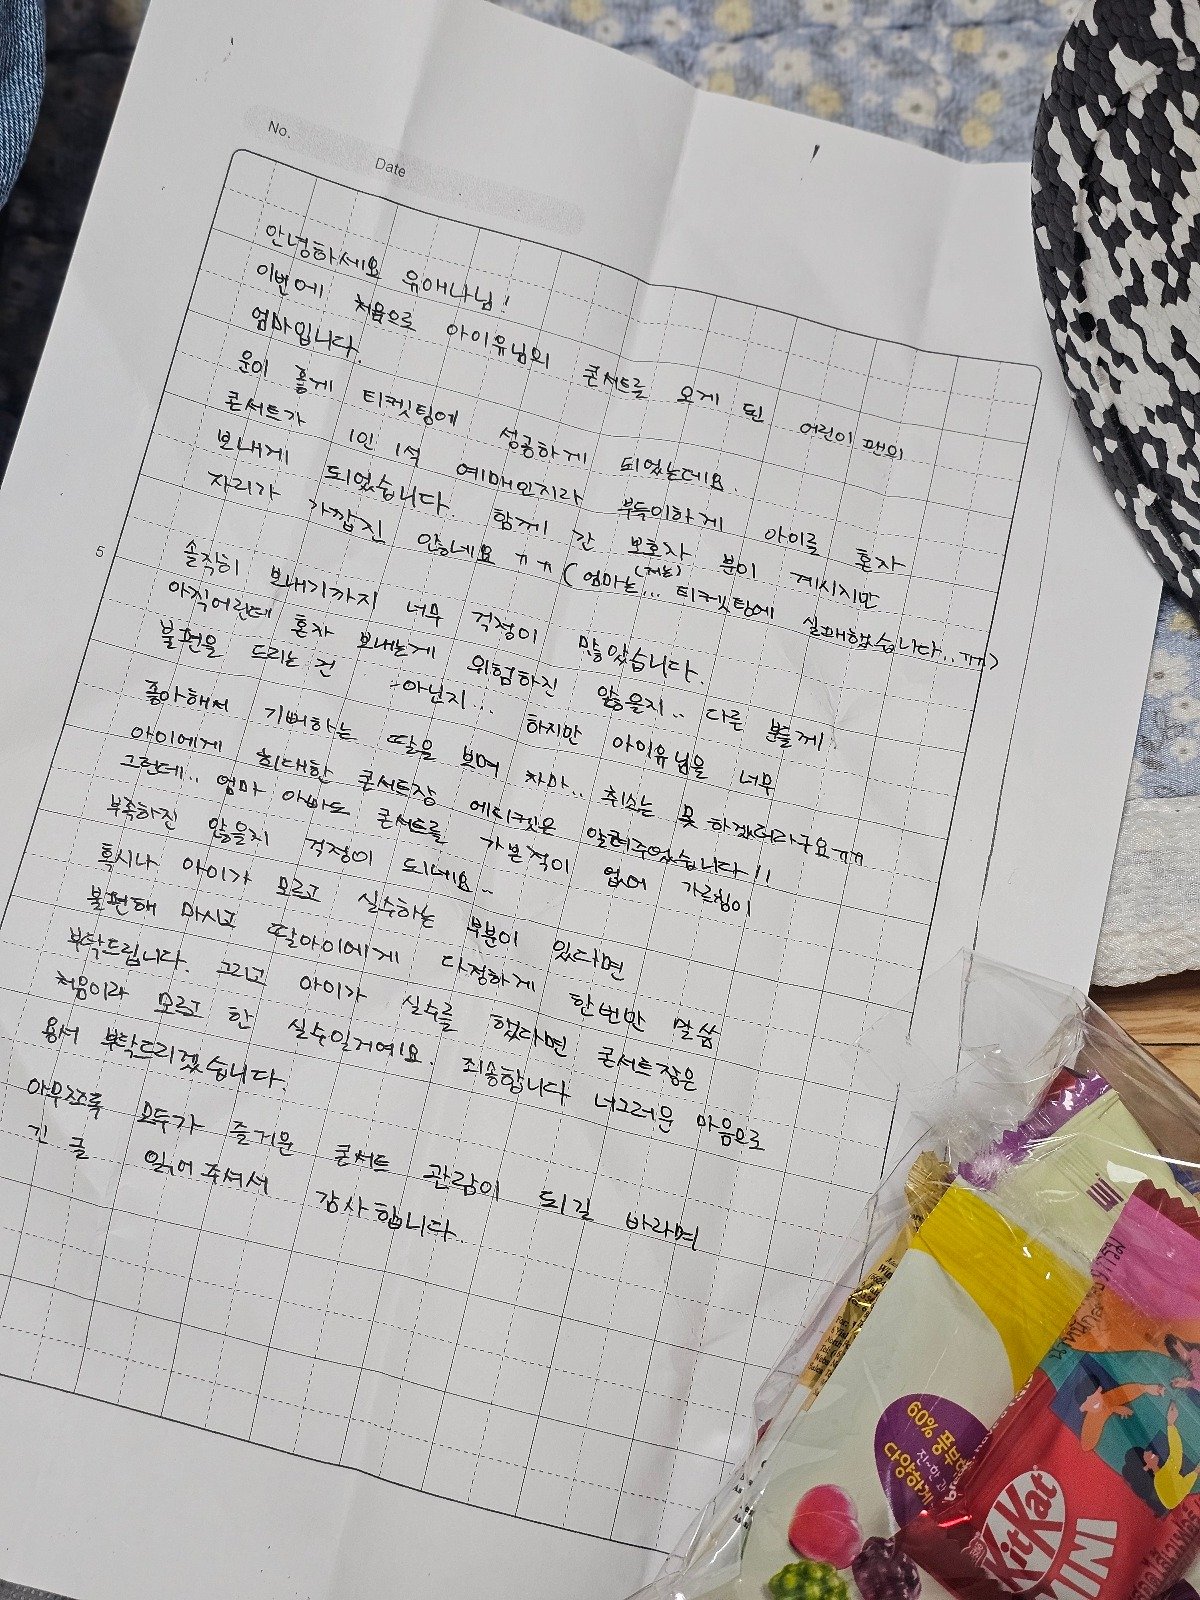 No.
Date
안녕하세요 유애나님!
이번에 처음으로 아이유님의 콘서트를 오게 된 어린이 팬의
엄마입니다.
운이 좋게 티켓팅에 성공하게 되었는데요.
콘서트가 1인 1석 예매인지라 부득이하게 아이를 혼자
보내게 되었습니다. 함께 간 보호자 분이 계시지만
자리가 가깝진 않네요 ㅠㅠ (엄마는(저는)... 티켓팅에 실패했습니다..ㅠㅠ)
5
솔직히 보내기까지 너무 걱정이 많았습니다.
아직어린데 혼자 보내는게 위험하진 않을지.. 다른 분들께
불편을 드리는 건 아닌지... 하지만 아이유님을 너무
좋아해서 기뻐하는 딸을 보며 차마.. 취소는 못 하겠더라구요ㅠㅠ
아이에게 최대한 콘서트장 에티켓은 알려주었습니다!!
그런데.. 엄마 아빠도 콘서트를 가본적이 없어 가르침이
부족하진 않을지 걱정이 되네요..
혹시나 아이가 모르고 실수하는 부분이 있다면
불편해 마시고 딸아이에게 다정하게 한번만 말씀
부탁드립니다. 그리고 아이가 실수를 했다면 콘서트장은
처음이라 모르고 한 실수일거예요. 죄송합니다 너그러운 마음으로
용서 부탁드리겠습니다.
아무쪼록 모두가 즐거운 콘서트 관람이 되길 바라며
긴 글 읽어주셔서 감사합니다.
60% 풍부한
다양하게
KitKat
MINI